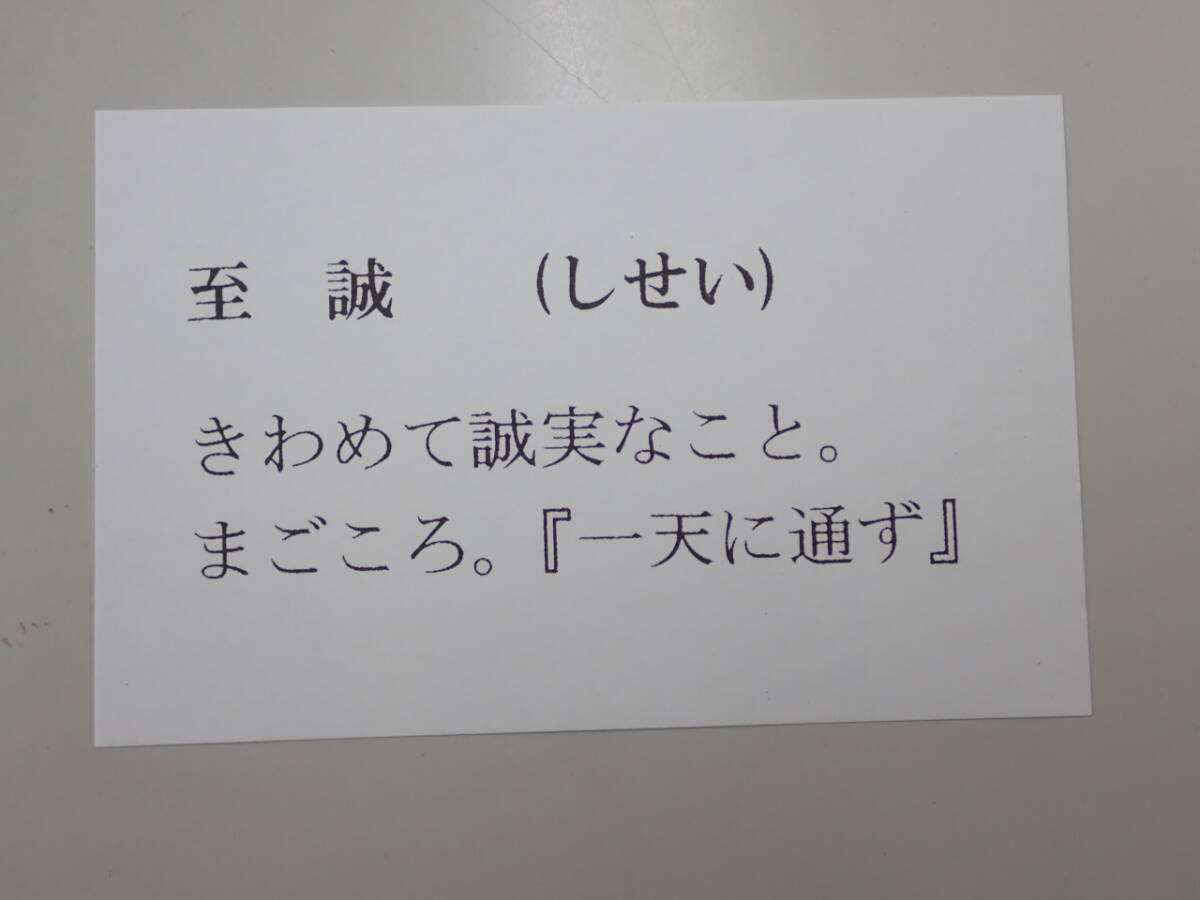 至　誠　　(しせい)
きわめて誠実なこと。
まごころ。『一天に通ず』